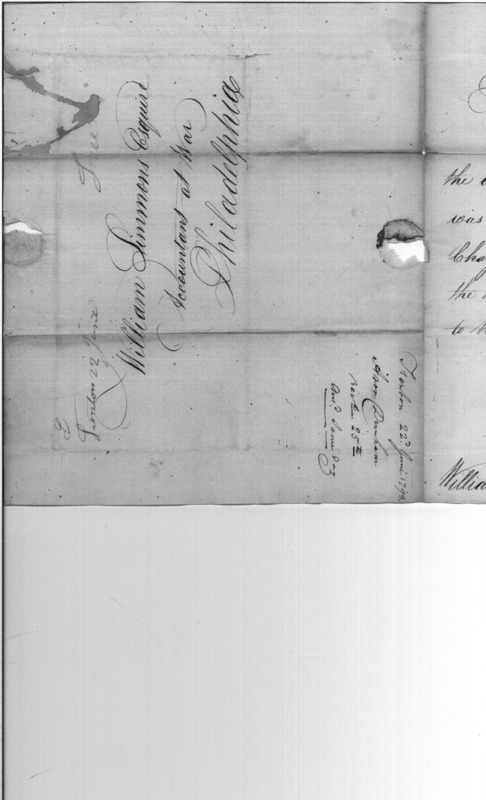 Trenton 22 June
Free
William Simmons Esquire
Accountant at War
Philadelphia
Trenton 22d June 1798
Aron Dunham
rec'd 25th
Ansd. Same day
the
was
Cha
the
to
Willia